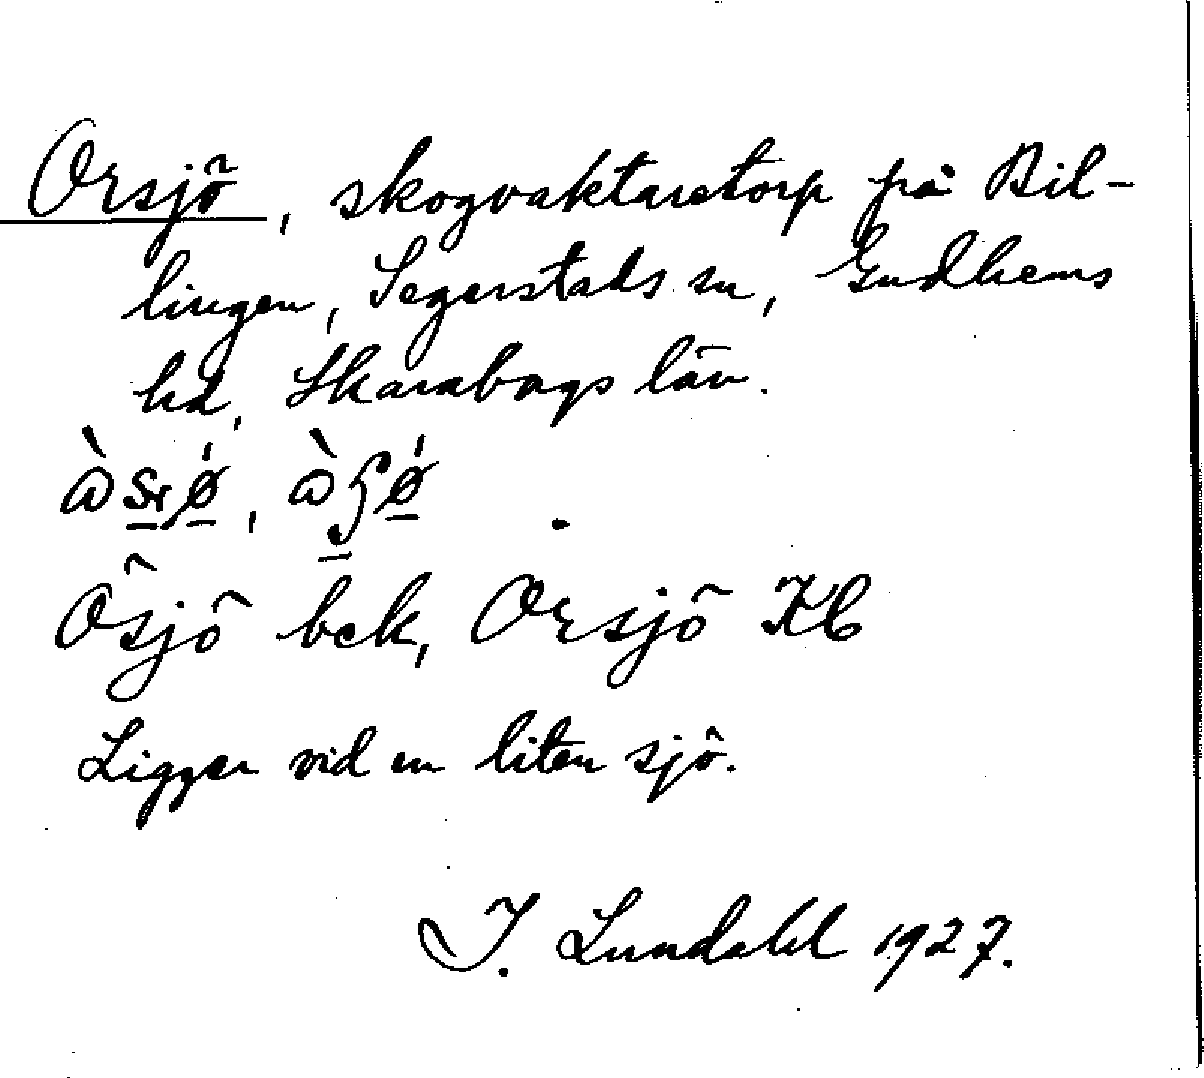 Orsjö, skogvaktaretorp på Bil-
lingen, Segerstads sn, Gudhems
hd, Skarabogs län.
Ösjö bek, Orsjö Kb
Ligger vid en liten sjö.
I. Lundahl 1927.